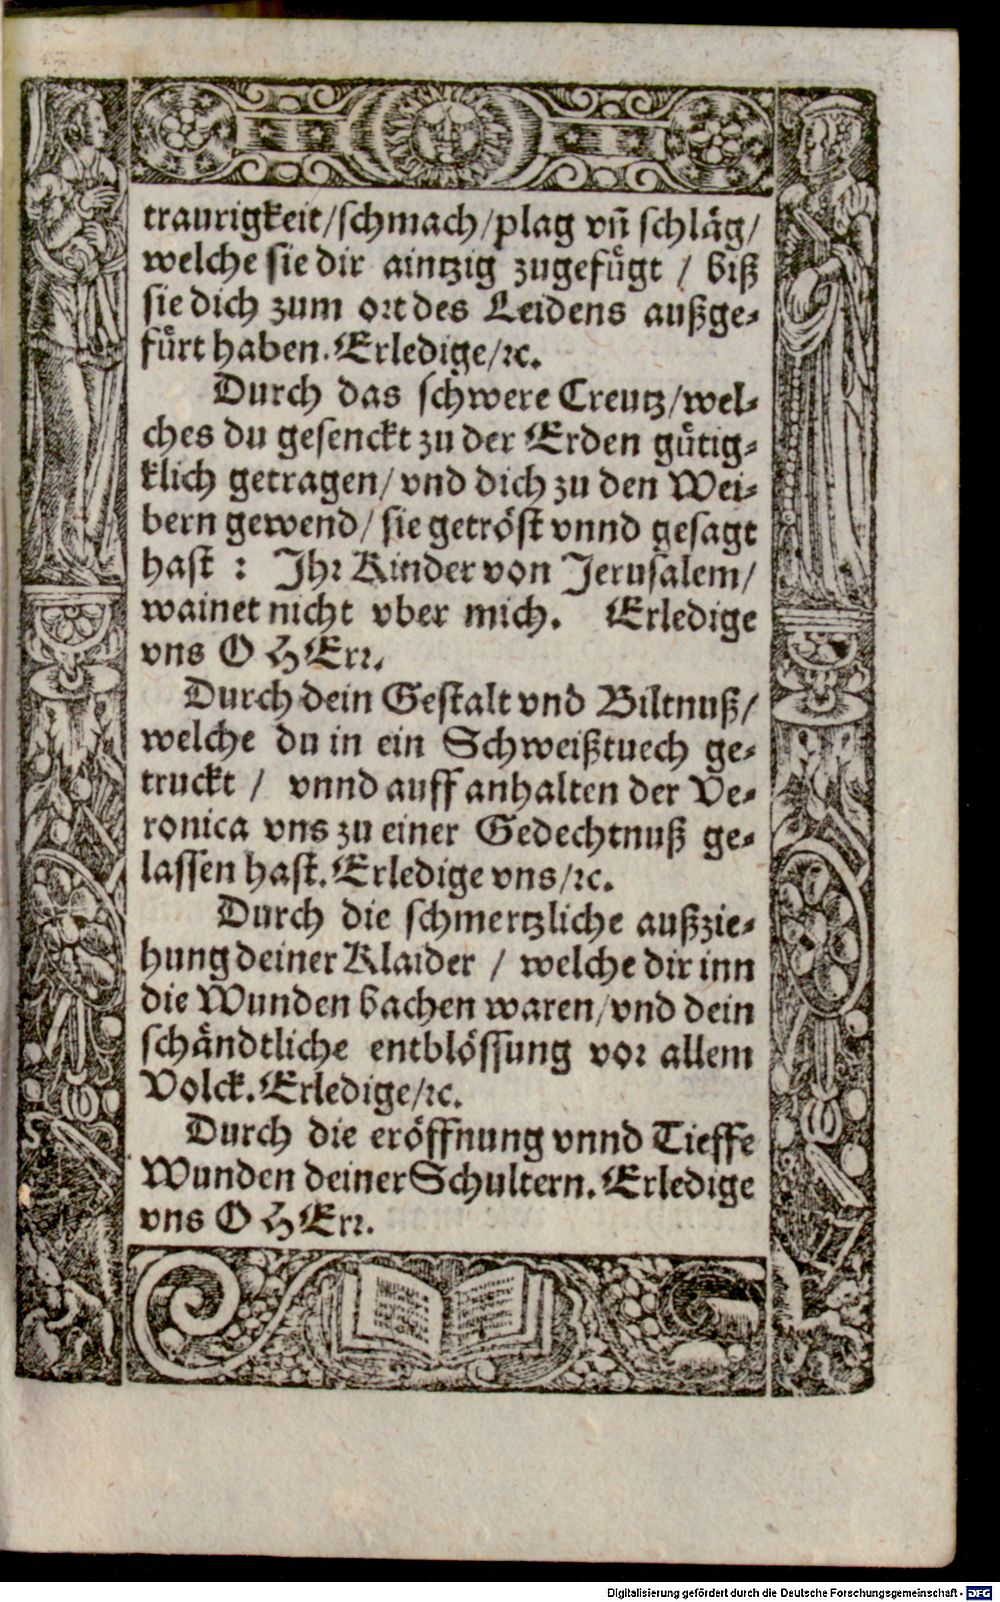 traurigkeit/schmach/plag vn̄ schlåg/
welche sie dir aintzig zugefůgt / biß
sie dich zum ort des Leidens außge-
fůrt haben. Erledige/ꝛc.
Durch das schwere Creutz/wel-
ches du gesenckt zu der Erden gůtig-
klich getragen/ vnd dich zu den Wei-
bern gewend/ sie getröst vnnd gesagt
hast : Ihr Kinder von Jerusalem/
wainet nicht vber mich. Erledige
vns O HErr.
Durch dein Gestalt vnd Biltnuß/
welche du in ein Schweißtuech ge-
truckt / vnnd auff anhalten der Ve-
ronica vns zu einer Gedechtnuß ge-
lassen hast. Erledige vns/ꝛc.
Durch die schmertzliche außzie-
hung deiner Klaider / welche dir inn
die Wunden bachen waren/vnd dein
schåndtliche entblössung vor allem
Volck. Erledige/ꝛc.
Durch die eröffnung vnnd Tieffe
Wunden deiner Schultern. Erledige
vns O HErr.
Digitalisierung gefördert durch die Deutsche Forschungsgemeinschaft - DFG